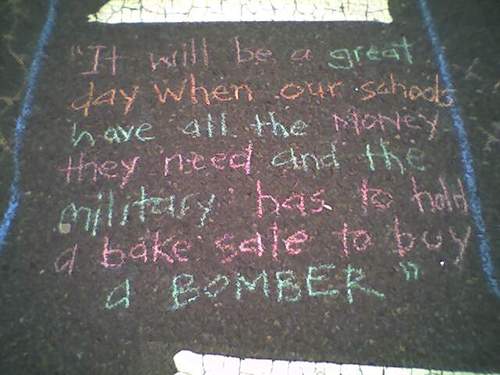 "It will be a great
day when our schools
have all the money
they need and the
military has to hold
a bake sale to buy
a BOMBER"